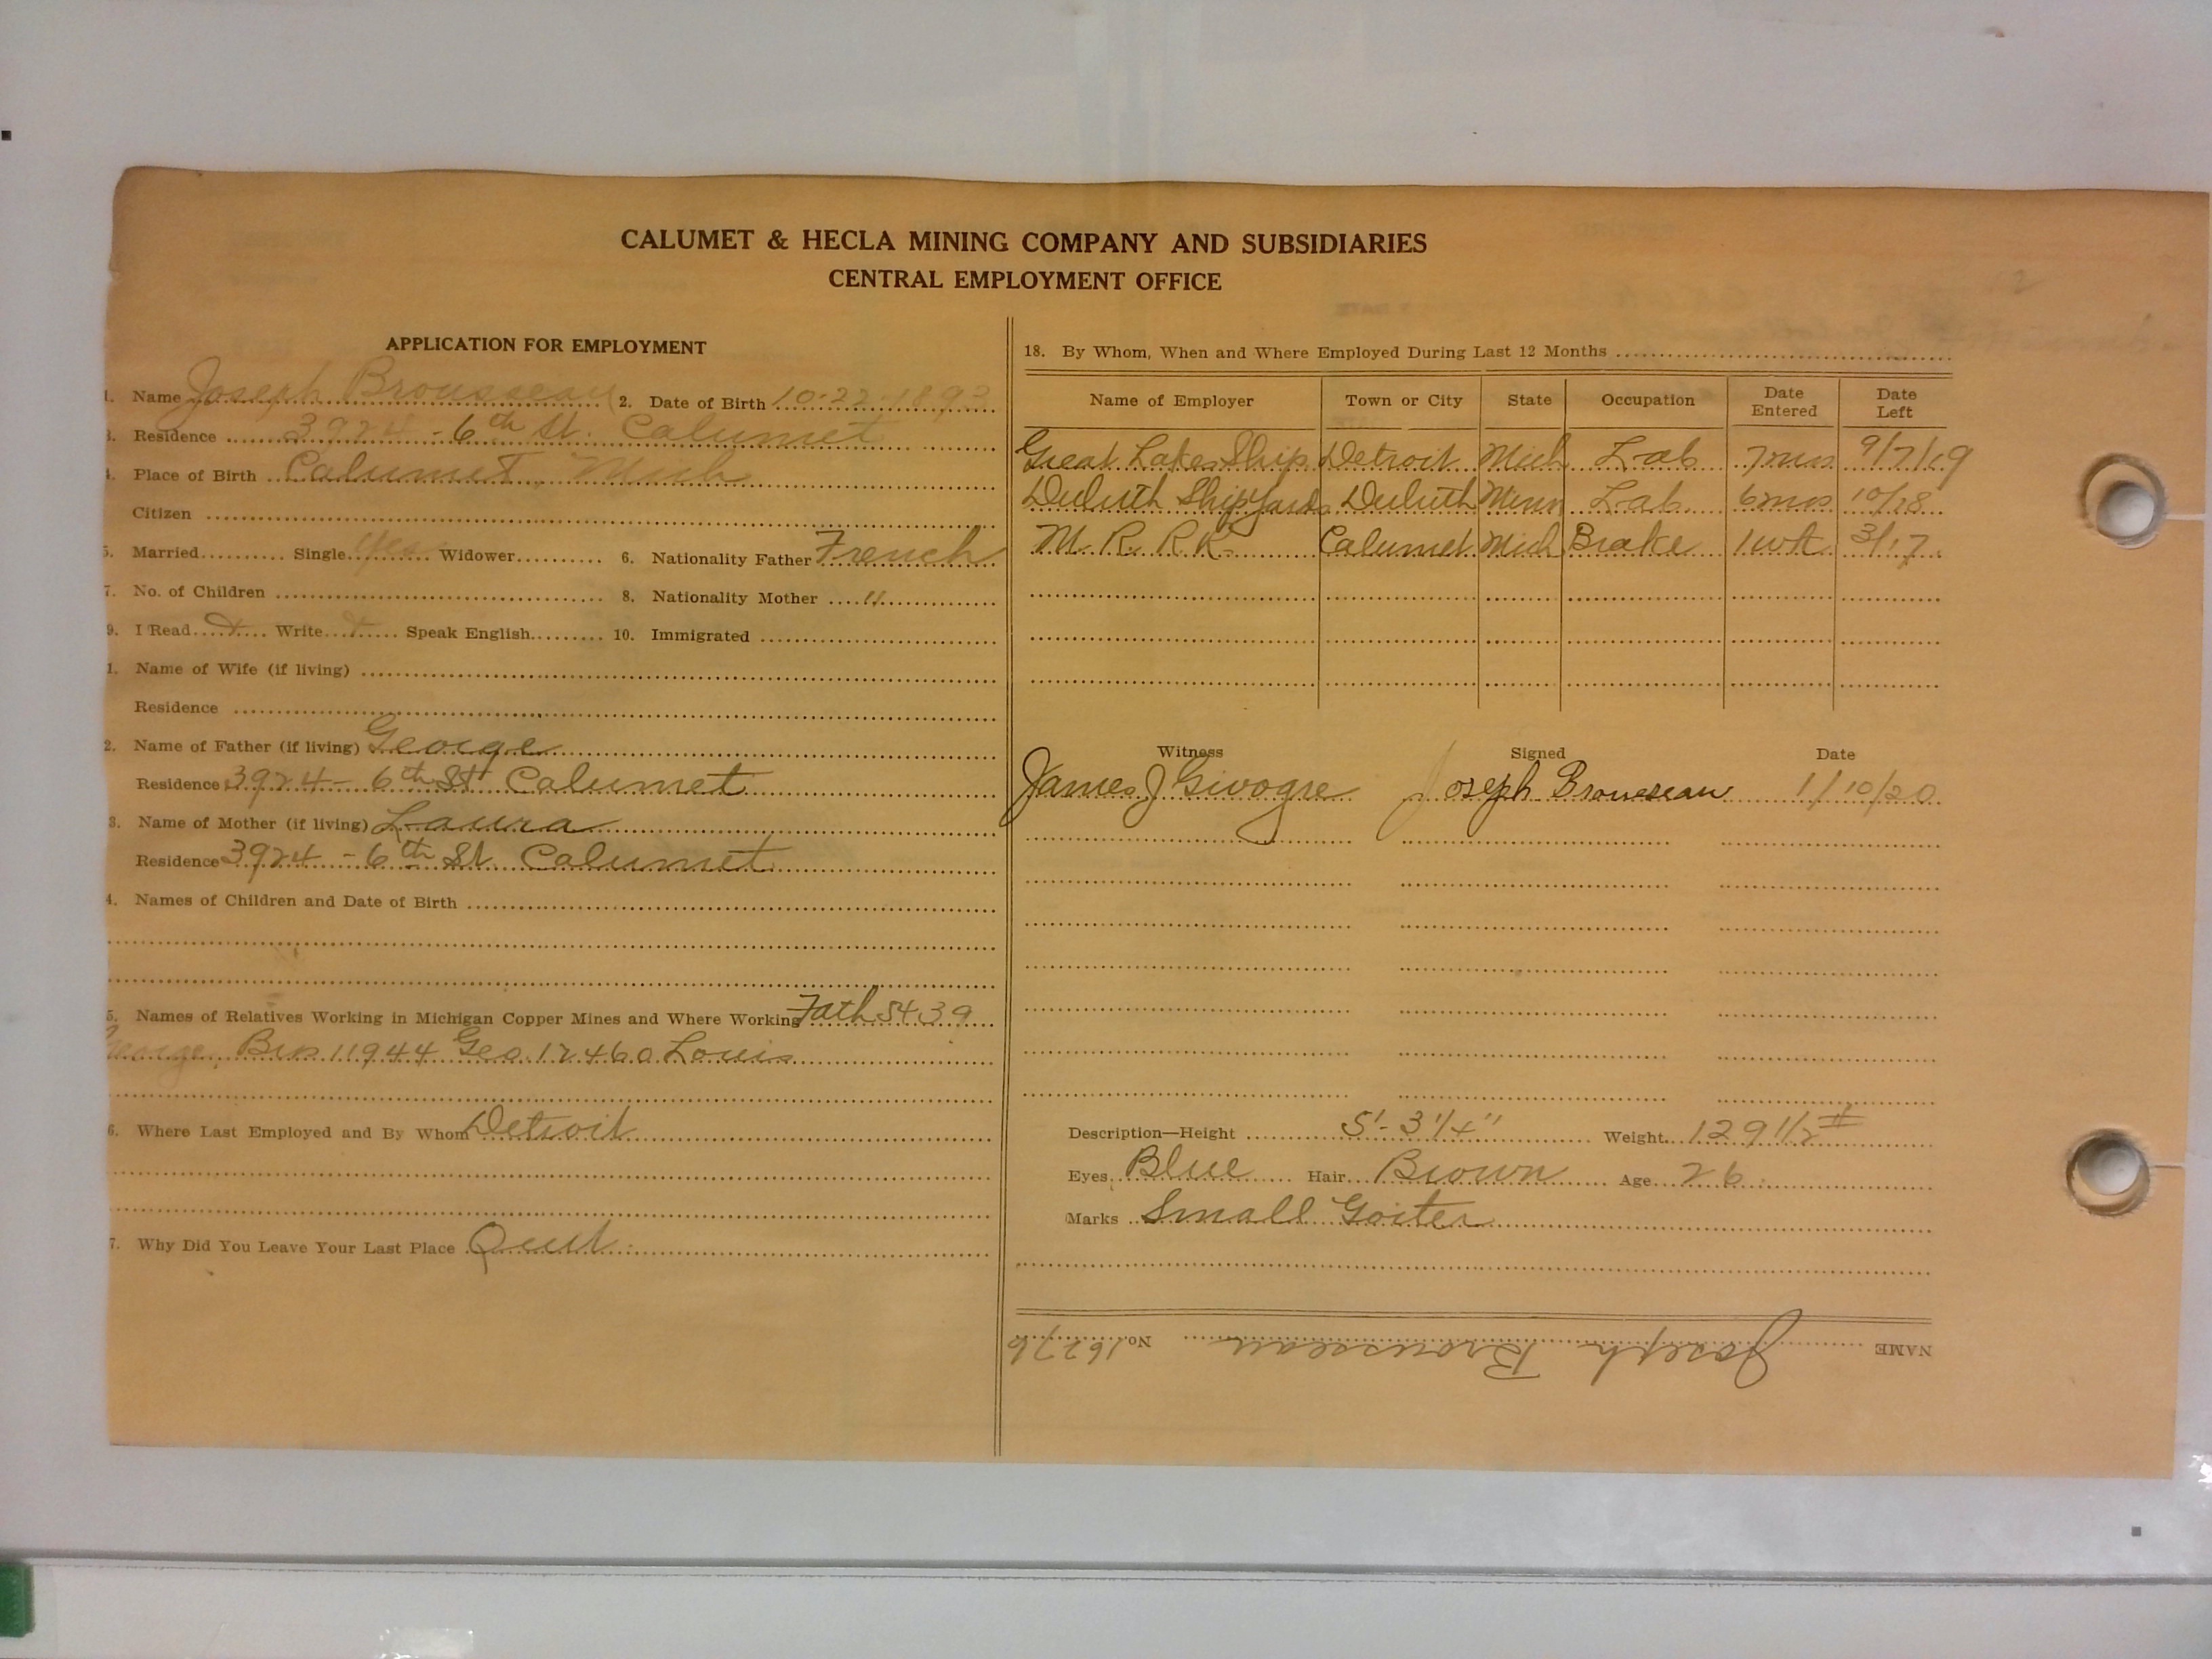 CALUMET & HECLA MINING COMPANY AND SUBSIDIARIES
CENTRAL EMPLOYMENT OFFICE
APPLICATION FOR EMPLOYMENT
1. Name Joseph Brousseau 2. Date of Birth 10-22-1893
3. Residence 3924 - 6th St. Calumet
4. Place of Birth Calumet, Mich
Citizen
5. Married Single Yes Widower 6. Nationality Father French
7. No. of Children 8. Nationality Mother "
9. I Read Write Speak English 10. Immigrated
1. Name of Wife (if living)
Residence
2. Name of Father (if living) George
Residence 3924 - 6th St Calumet
3. Name of Mother (if living) Laura
Residence 3924 - 6th St. Calumet
4. Names of Children and Date of Birth
5. Names of Relatives Working in Michigan Copper Mines and Where Working Fath 5439
George, Bro 11944 Geo. 12460 Louis
6. Where Last Employed and By Whom Detroit
7. Why Did You Leave Your Last Place Quit
18. By Whom, When and Where Employed During Last 12 Months
Name of Employer Town or City State Occupation Date Entered Date Left
Great Lakes Ship Detroit Mich Lab 7mos 9/7/19
Duluth Shipyards Duluth Minn Lab. 6mos 10/18
M. R. RR Calumet Mich Brake 1wk 3/17
Witness Signed Date
James J Givogre Joseph Brousseau 1/10/20
Description—Height 5'-3 1/4" Weight 129 1/2 #
Eyes Blue Hair Brown Age 26
Marks Small Goiter
NAME Joseph Brousseau No. 16276